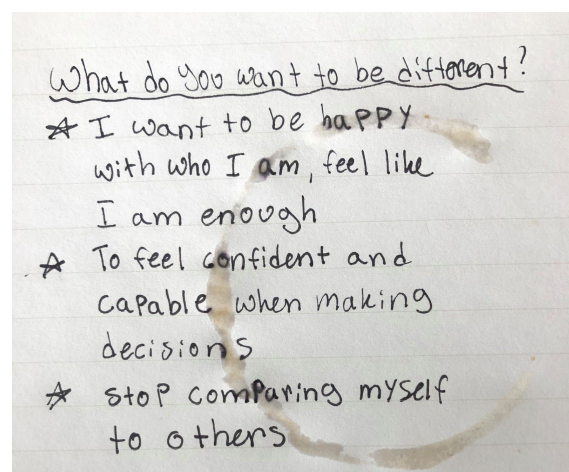 What do you want to be different?
☆ I want to be happy
with who I am, feel like
I am enough
☆ To feel confident and
capable when making
decisions
☆ stop comparing myself
to others